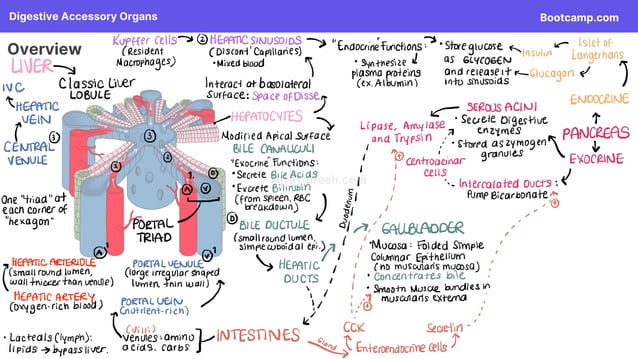 Digestive Accessory Organs
Bootcamp.com
Overview
LIVER
Classic Liver
LOBULE
IVC
HEPATIC
VEIN
CENTRAL
VENULE
One "triad" at
each corner of
"hexagon"
PORTAL
TRIAD
HEPATIC ARTERIOLE
(small round lumen,
wall thicker than venule)
HEPATIC ARTERY
(oxygen-rich blood)
PORTAL VENULE
(large irregular shaped
lumen, thin wall)
PORTAL VEIN
(nutrient-rich)
(villi)
venules: amino
acids, carbs
• Lacteals (lymph):
lipids → bypass liver.
Kupffer Cells
(Resident
Macrophages)
② HEPATIC SINUSOIDS
(Discont' Capillaries)
• Mixed blood
Interact at basolateral
Surface: Space of Disse
HEPATOCYTES
Modified Apical Surface
BILE CANALICULI
"Exocrine" Functions:
• Secrete Bile Acids
• Excrete Bilirubin
(from spleen, RBC
breakdown)
BILE DUCTULE
(small round lumen,
simple cuboidal epi.)
HEPATIC
DUCTS
INTESTINES
"Endocrine" Functions:
• Synthesize
plasma proteins
(ex. Albumin)
• Store glucose
as GLYCOGEN
and release it
into sinusoids
Insulin
Glucagon
Islet of
Langerhans
ENDOCRINE
PANCREAS
EXOCRINE
SEROUS ACINI
• Secrete Digestive
enzymes
• Stored as zymogen
granules
Lipase, Amylase
and Trypsin
Centroacinar
cells
Intercalated Ducts:
Pump Bicarbonate
Duodenum
GALLBLADDER
• Mucosa: Folded Simple
Columnar Epithelium
(no muscularis mucosa)
• Concentrates bile
• Smooth Muscle bundles in
muscularis externa
CCK
Secretin
Enteroendocrine Cells